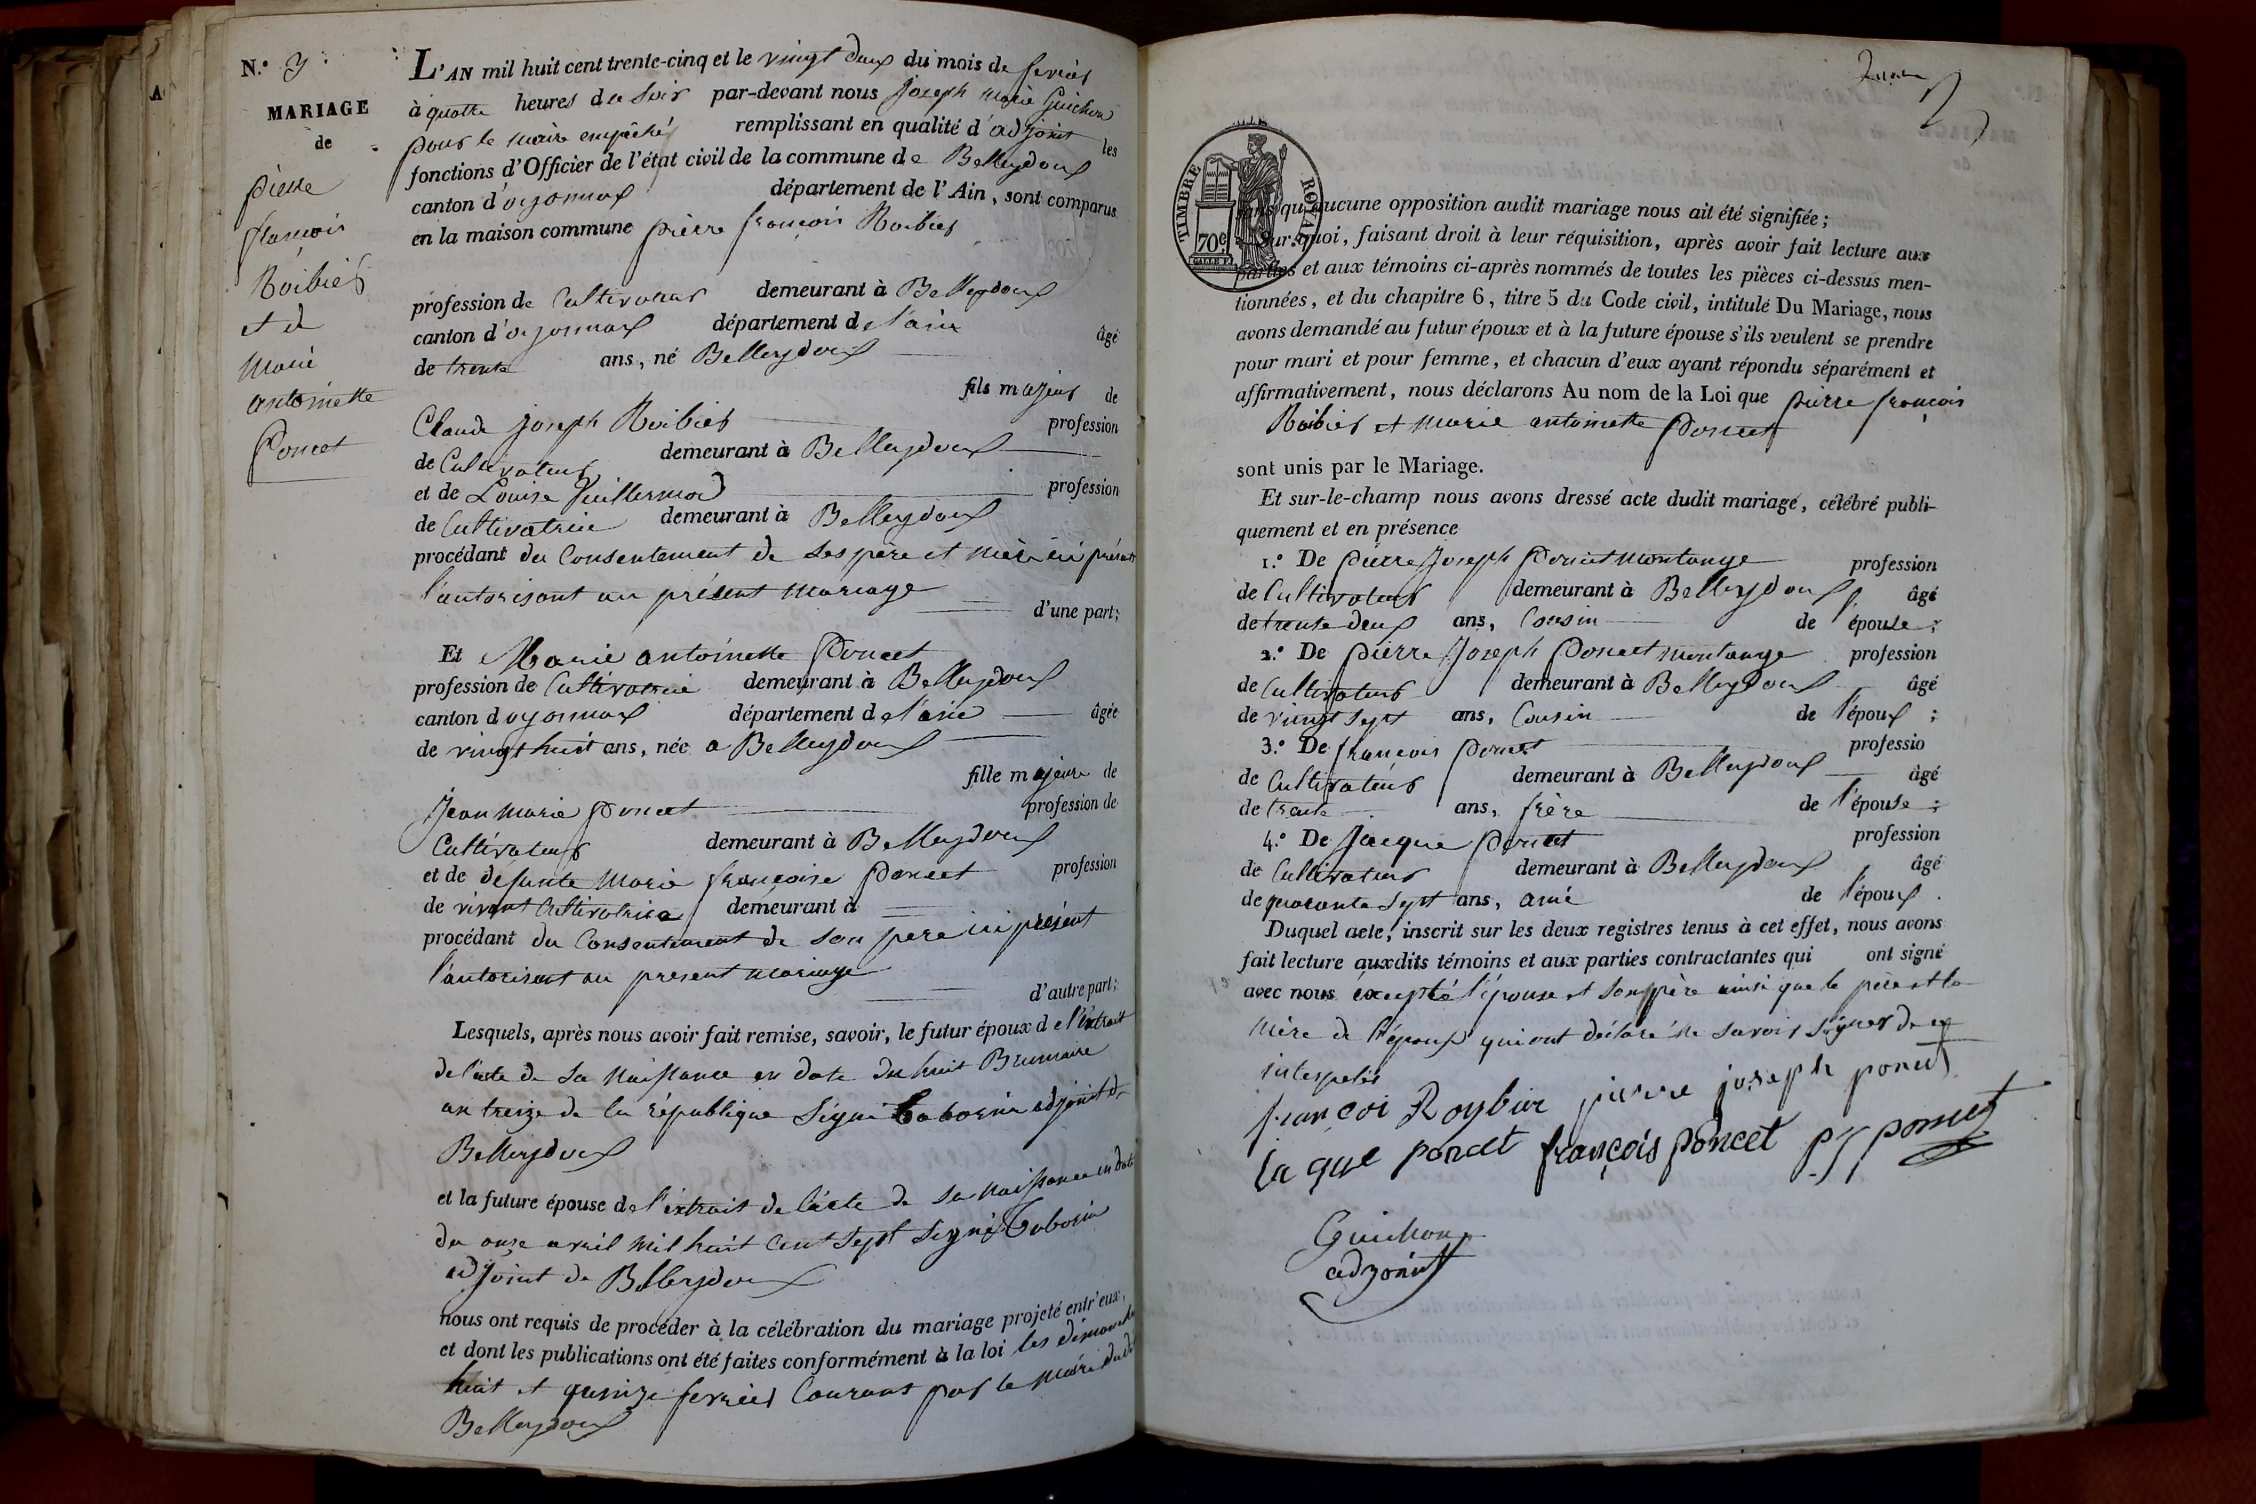 N.º 3
MARIAGE
de
pierre
françois
Roibier
et de
Marie
antoinette
Poncet
L'AN mil huit cent trente-cinq et le vingt deux du mois de fevrier
à quatre heures du soir par-devant nous Joseph Marie Guichon
pour le maire empêché remplissant en qualité d'adjoint les
fonctions d'Officier de l'état civil de la commune de Belleydoux
canton d'oyonnax département de l'Ain, sont comparus
en la maison commune pierre françois Roibier
profession de Cultivateur demeurant à Belleydoux
canton d'oyonnax département de l'ain âgé
de trente ans, né Belleydoux
fils majeur de
Claude Joseph Roibier profession
de Cultivateur demeurant à Belleydoux
et de Louise Guillermod profession
de Cultivatrice demeurant à Belleydoux
procédant du Consentement de ses père et mère ici présents
l'autorisant au présent mariage
d'une part;
Et Marie antoinette Poncet
profession de Cultivatrice demeurant à Belleydoux
canton d'oyonnax département de l'ain âgée
de vingt huit ans, née a Belleydoux
fille majeure de
Jean Marie Poncet profession de
Cultivateur demeurant à Belleydoux
et de défunte Marie françoise Poncet profession
de vivant Cultivatrice demeurant à
procédant du Consentement de son pere ici présent
l'autorisant au present mariage
d'autre part;
Lesquels, après nous avoir fait remise, savoir, le futur époux de l'extrait
de l'acte de sa naissance en date du huit Brumaire
an treize de la république signé Taborin adjoint de
Belleydoux
et la future épouse de l'extrait de l'acte de sa naissance en date
du onze avril mil huit cent sept signé Taborin
adjoint de Belleydoux
nous ont requis de procéder à la célébration du mariage projeté entr'eux,
et dont les publications ont été faites conformément à la loi les dimanches
huit et quinze fevrier Courant par le maire dudit
Belleydoux
TIMBRE ROYAL
70c
sans qu'aucune opposition audit mariage nous ait été signifiée;
Sur quoi, faisant droit à leur réquisition, après avoir fait lecture aux
parties et aux témoins ci-après nommés de toutes les pièces ci-dessus men-
tionnées, et du chapitre 6, titre 5 du Code civil, intitulé Du Mariage, nous
avons demandé au futur époux et à la future épouse s'ils veulent se prendre
pour mari et pour femme, et chacun d'eux ayant répondu séparément et
affirmativement, nous déclarons Au nom de la Loi que pierre françois
Roibier et Marie antoinette Poncet
sont unis par le Mariage.
Et sur-le-champ nous avons dressé acte dudit mariage, célébré publi-
quement et en présence
1.º De pierre Joseph Poncet Montange profession
de Cultivateur demeurant à Belleydoux âgé
de trente deux ans, Cousin de l'épouse;
2.º De pierre Joseph Poncet montange profession
de Cultivateur demeurant à Belleydoux âgé
de vingt sept ans, Cousin de l'époux;
3.º De françois Poncet professio
de Cultivateur demeurant à Belleydoux âgé
de trente ans, frère de l'épouse;
4.º De Jacque Poncet profession
de Cultivateur demeurant à Belleydoux âgé
de quarante sept ans, ami de l'époux.
Duquel acte, inscrit sur les deux registres tenus à cet effet, nous avons
fait lecture auxdits témoins et aux parties contractantes qui ont signé
avec nous excepté l'épouse et son père ainsi que le père et la
mère de l'époux qui ont déclaré ne savoir signer de ce
interpelés
françoi Roybier pierre joseph poncet
Ja que poncet françois poncet pjj poncet
Guichon
adjoint